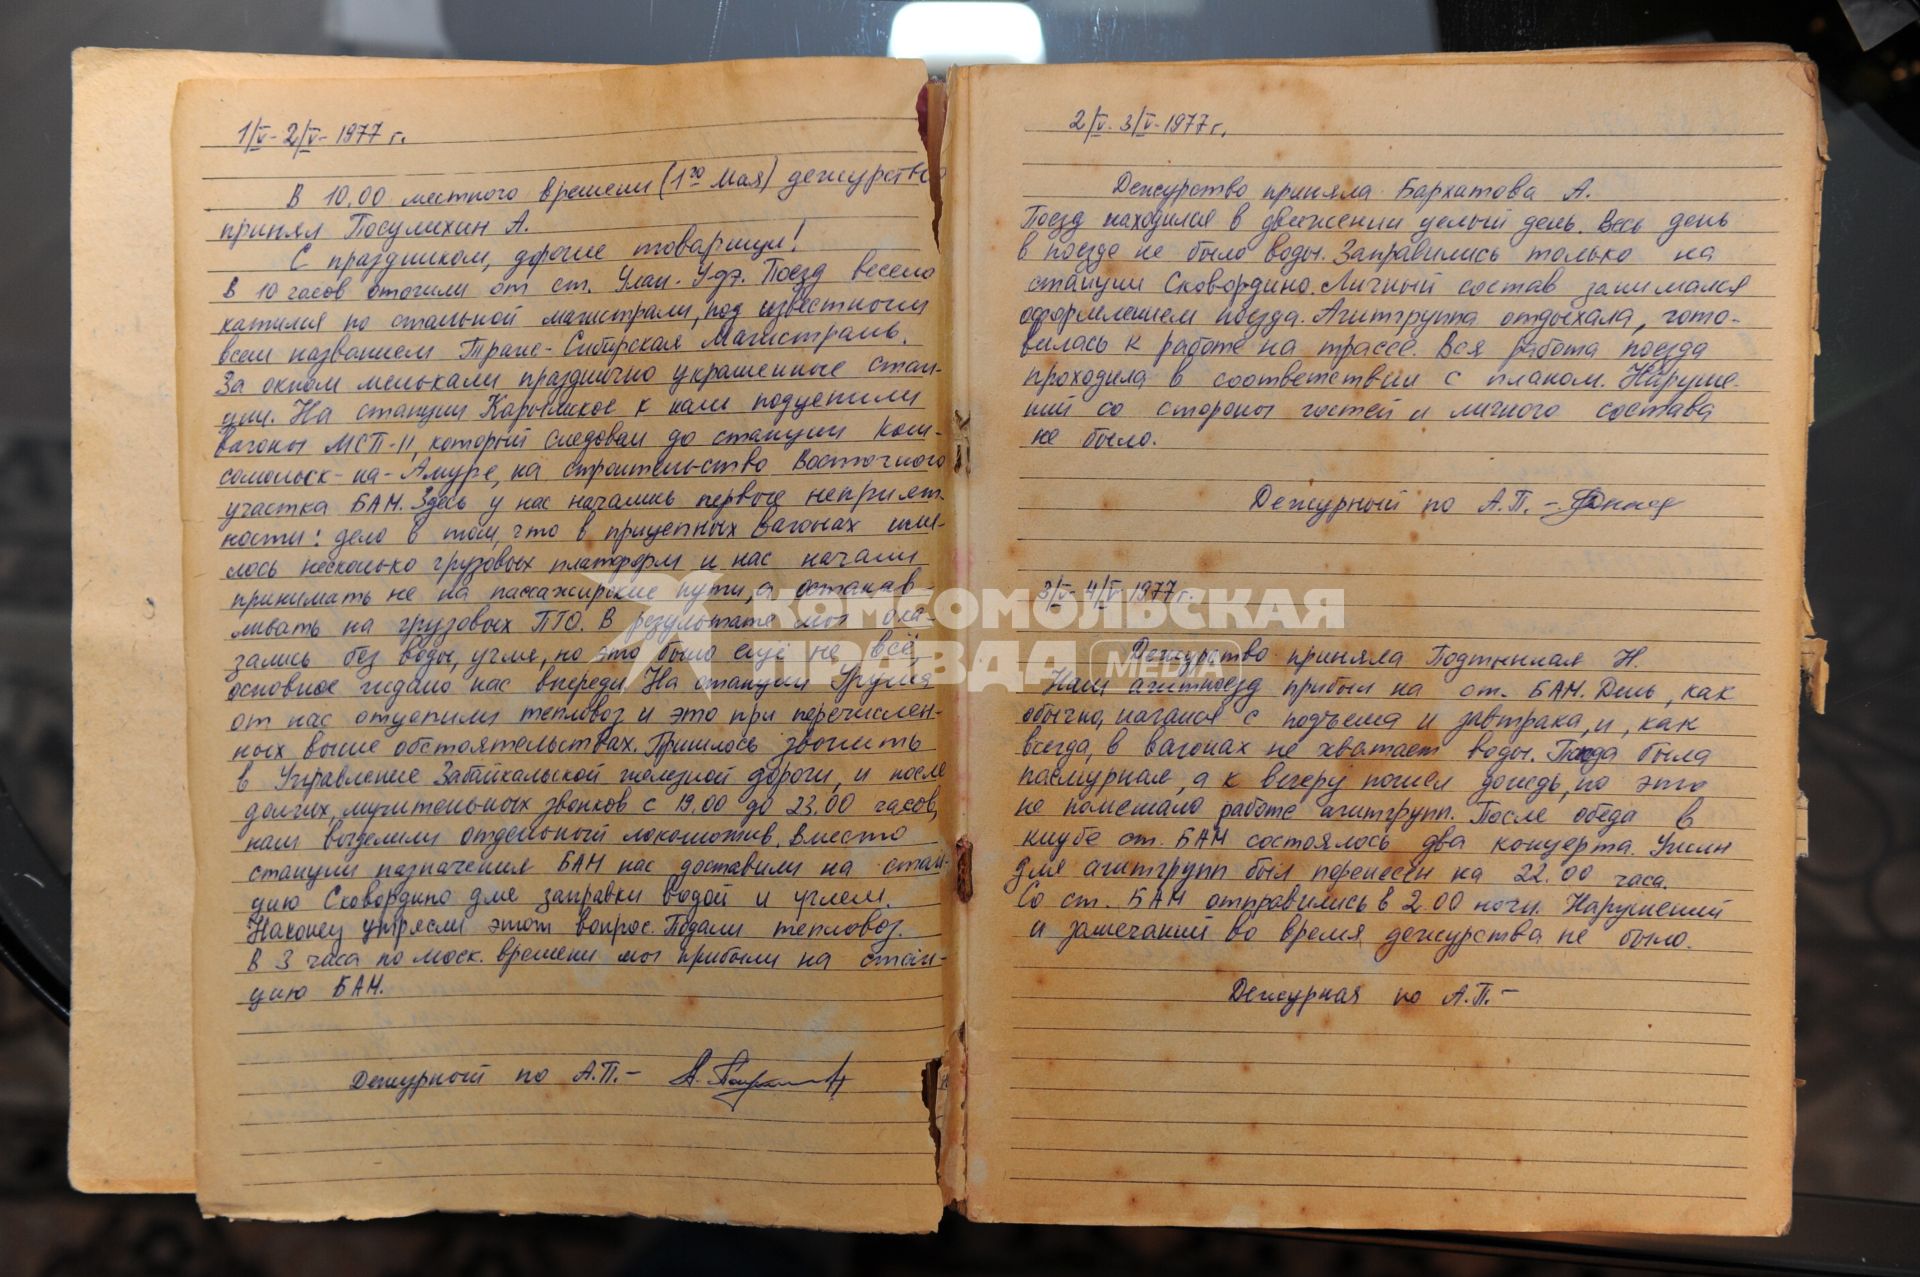 1/V-2/V-1977 г.
В 10.00 местного времени (1го Мая) дежурство
принял Посулихин А.
С праздником, дорогие товарищи!
В 10 часов отошли от ст. Улан-Удэ. Поезд весело
катился по стальной магистрали, под известным
всем названием Транс-Сибирская Магистраль.
За окном мелькали празднично украшенные стан-
ции. На станции Карымское к нам подцепили
вагоны МСП-11, который следовал до станции Ком-
сомольск-на-Амуре, на строительство Восточного
участка БАМ. Здесь у нас начались первые неприят-
ности: дело в том, что в прицепных вагонах име-
лось несколько грузовых платформ и нас начали
принимать не на пассажирские пути, а останав-
ливать на грузовых ПТО. В результате мы ока-
зались без воды, угля, но это было ещё не всё,
основное ждало нас впереди. На станции Уруша
от нас отцепили тепловоз и это при перечислен-
ных выше обстоятельствах. Пришлось звонить
в Управление Забайкальской железной дороги, и после
долгих, мучительных звонков с 19.00 до 23.00 часов,
нам выделили отдельный локомотив. Вместо
станции назначения БАМ нас доставили на стан-
цию Сковородино для заправки водой и углем.
Наконец утрясли этот вопрос. Подали тепловоз.
В 3 часа по моск. времени мы прибыли на стан-
цию БАМ.
Дежурный по А.П.-
2/V-3/V-1977 г.
Дежурство приняла Бархатова А.
Поезд находился в движении целый день. Весь день
в поезде не было воды. Заправились только на
станции Сковордино. Личный состав занимался
оформлением поезда. Агитгруппа отдыхала, гото-
вилась к работе на трассе. Вся работа поезда
проходила в соответствии с планом. Наруше-
ний со стороны гостей и личного состава
не было.
Дежурный по А.П. -
3/V-4/V-1977 г.
Дежурство приняла Подтынная Н.
Наш агитпоезд прибыл на ст. БАМ. День, как
обычно, начался с подъема и завтрака, и, как
всегда, в вагонах не хватает воды. Погода была
пасмурная, а к вечеру пошел дождь, но это
не помешало работе агитгрупп. После обеда в
клубе ст. БАМ состоялось два концерта. Ужин
для агитгрупп был перенесен на 22.00 часа.
Со ст. БАМ отправились в 2.00 ночи. Нарушений
и замечаний во время дежурства не было.
Дежурная по А.П.-
КОМСОМОЛЬСКАЯ
ПРАВДА MEDIA